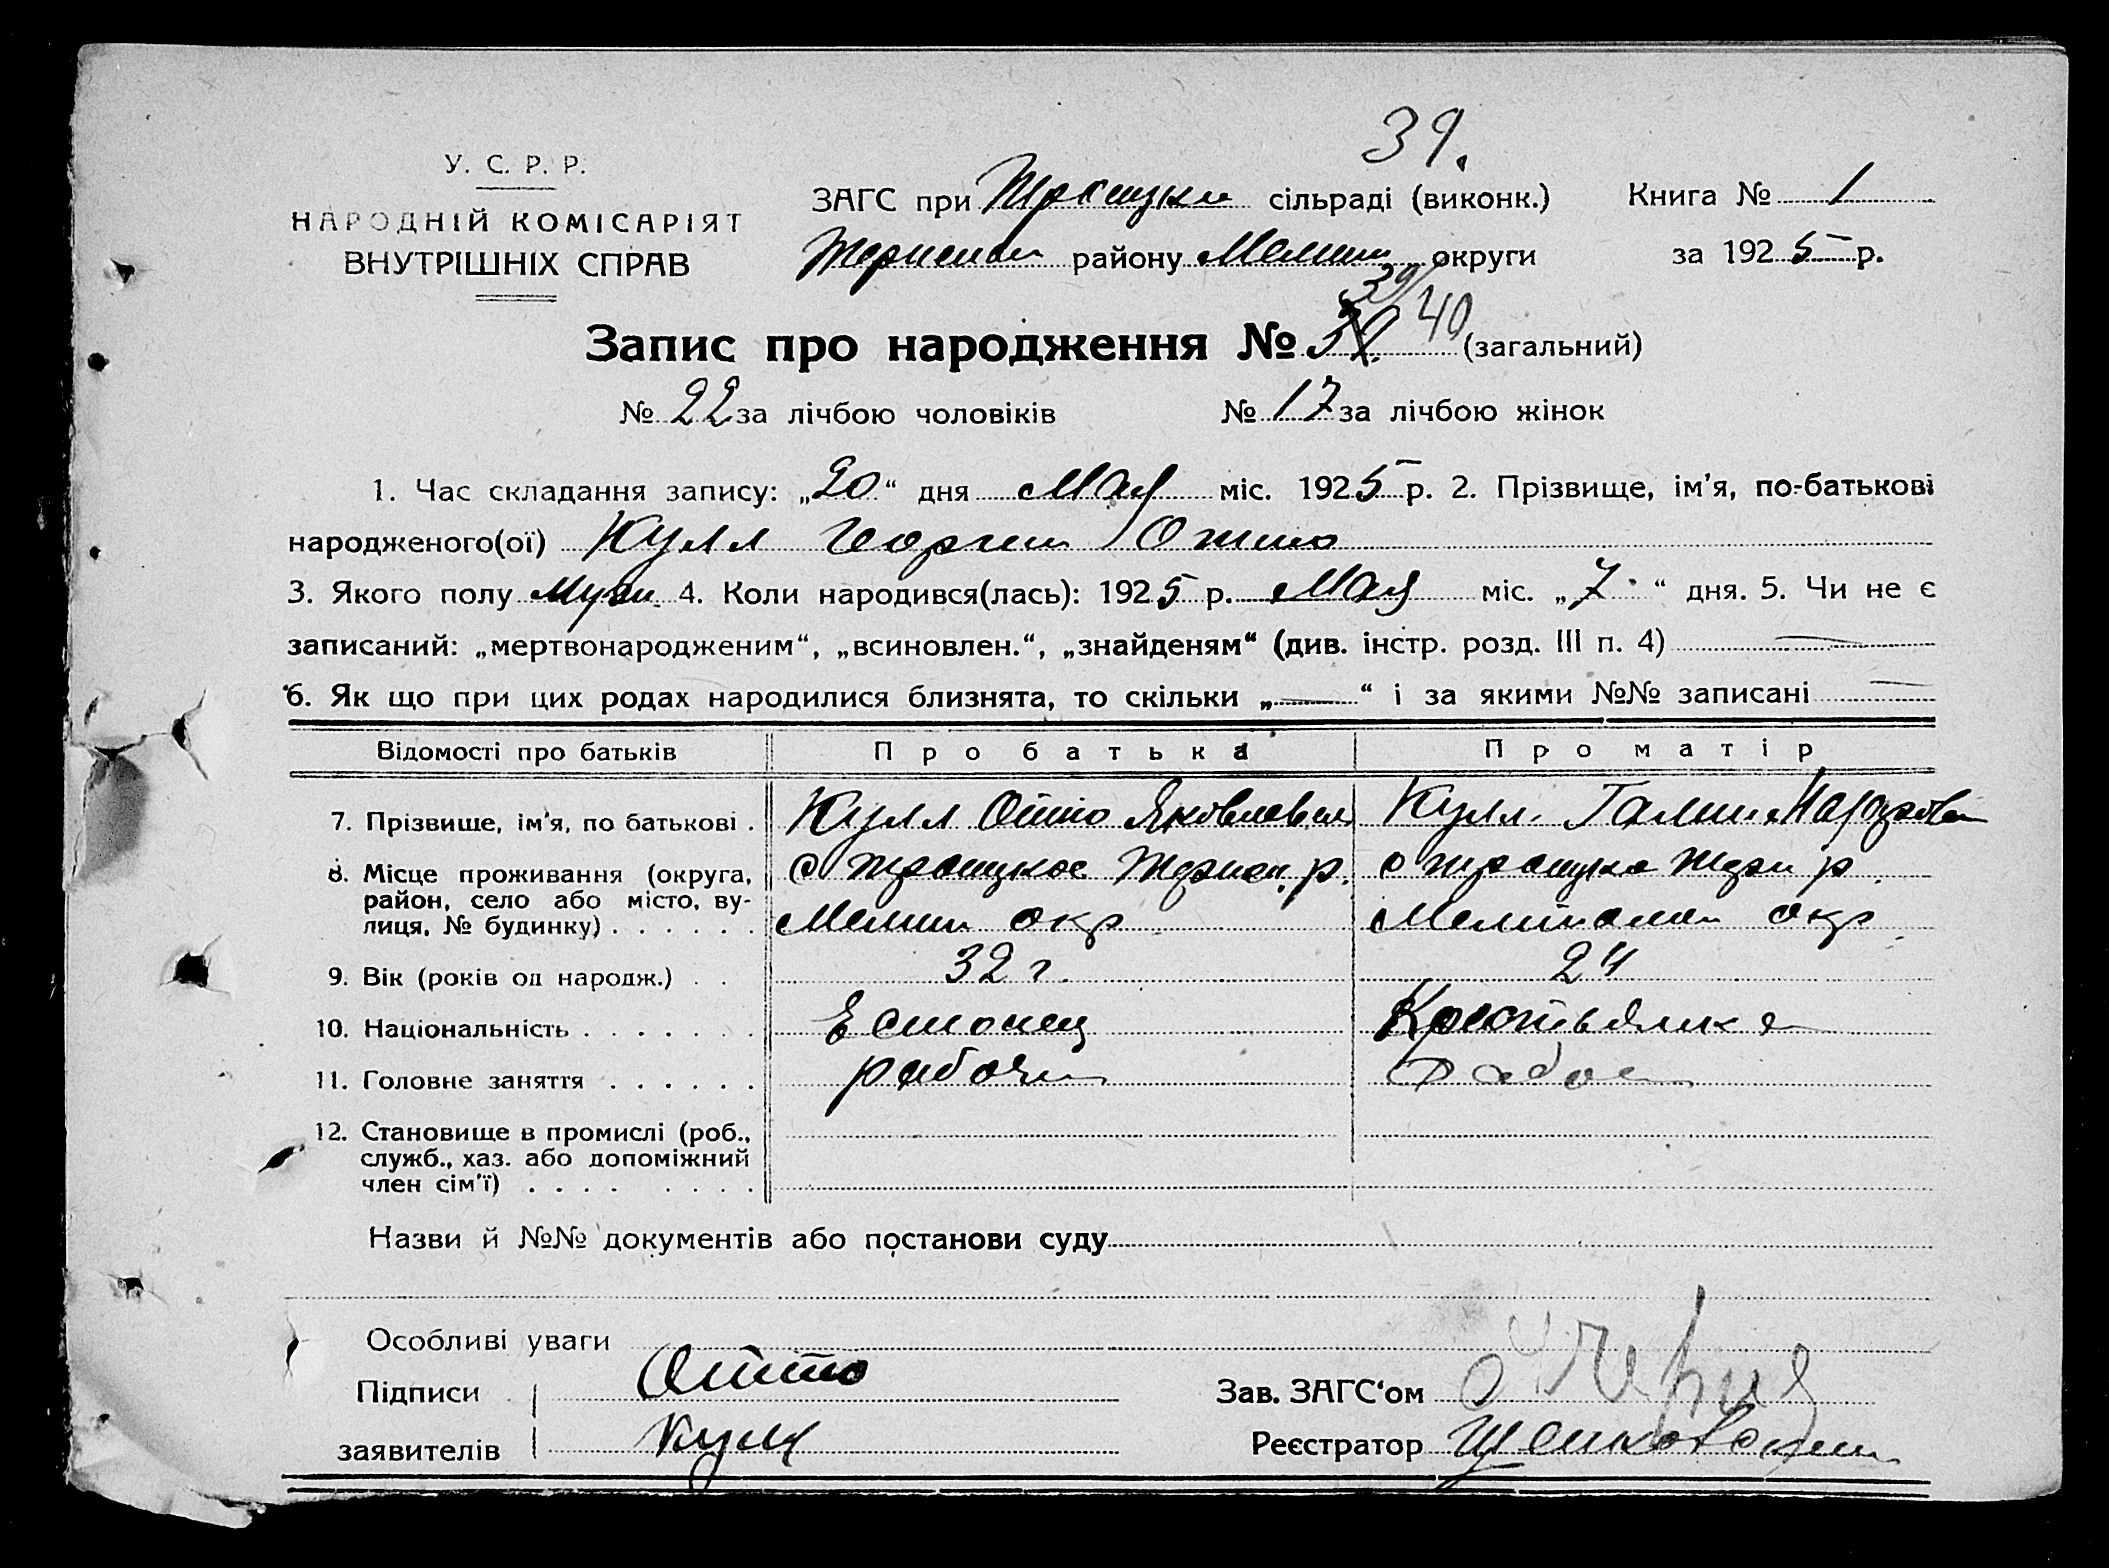 39.
У. С. Р. Р.
НАРОДНІЙ КОМІСАРІЯТ
ВНУТРІШНІХ СПРАВ
ЗАГС при Троицки сільраді (виконк.)
району Мелит округи
Книга № 1
за 1925 р.
39/40
Запис про народження № (загальний)
№ 22 за лічбою чоловіків № 17 за лічбою жінок
1. Час складання запису: „20“ дня Мая міс. 1925 р. 2. Прізвище, ім'я, по-батькові
народженого(ої) Кулл Георгий Отто
3. Якого полу Муж 4. Коли народився(лась): 1925 р. Мая міс. „7“ дня. 5. Чи не є
записаний: „мертвонародженим“, „всиновлен.“, „знайденям“ (див. інстр. розд. III п. 4)
6. Як що при цих родах народилися близнята, то скільки „—“ і за якими №№ записані —
Відомості про батьків Про батька Про матір
7. Прізвище, ім'я, по батькові . Кулл Отто Яковлевич Кулл Галин
8. Місце проживання (округа, район, село або місто, вулиця, № будинку) . . . . . . с Троицкое р. Мелит окр с р Мелитопол окр
9. Вік (років од народж.) . . 32 г. 24
10. Національність . . . . . . . Естонец Крестьянка
11. Головне заняття . . . . . . рабочи
12. Становище в промислі (роб., служб., хаз. або допоміжний член сім'ї) . . . . . . . .
Назви й №№ документів або постанови суду
Особливі уваги
Підписи заявителів Отто
Кулл
Зав. ЗАГС'ом
Реєстратор